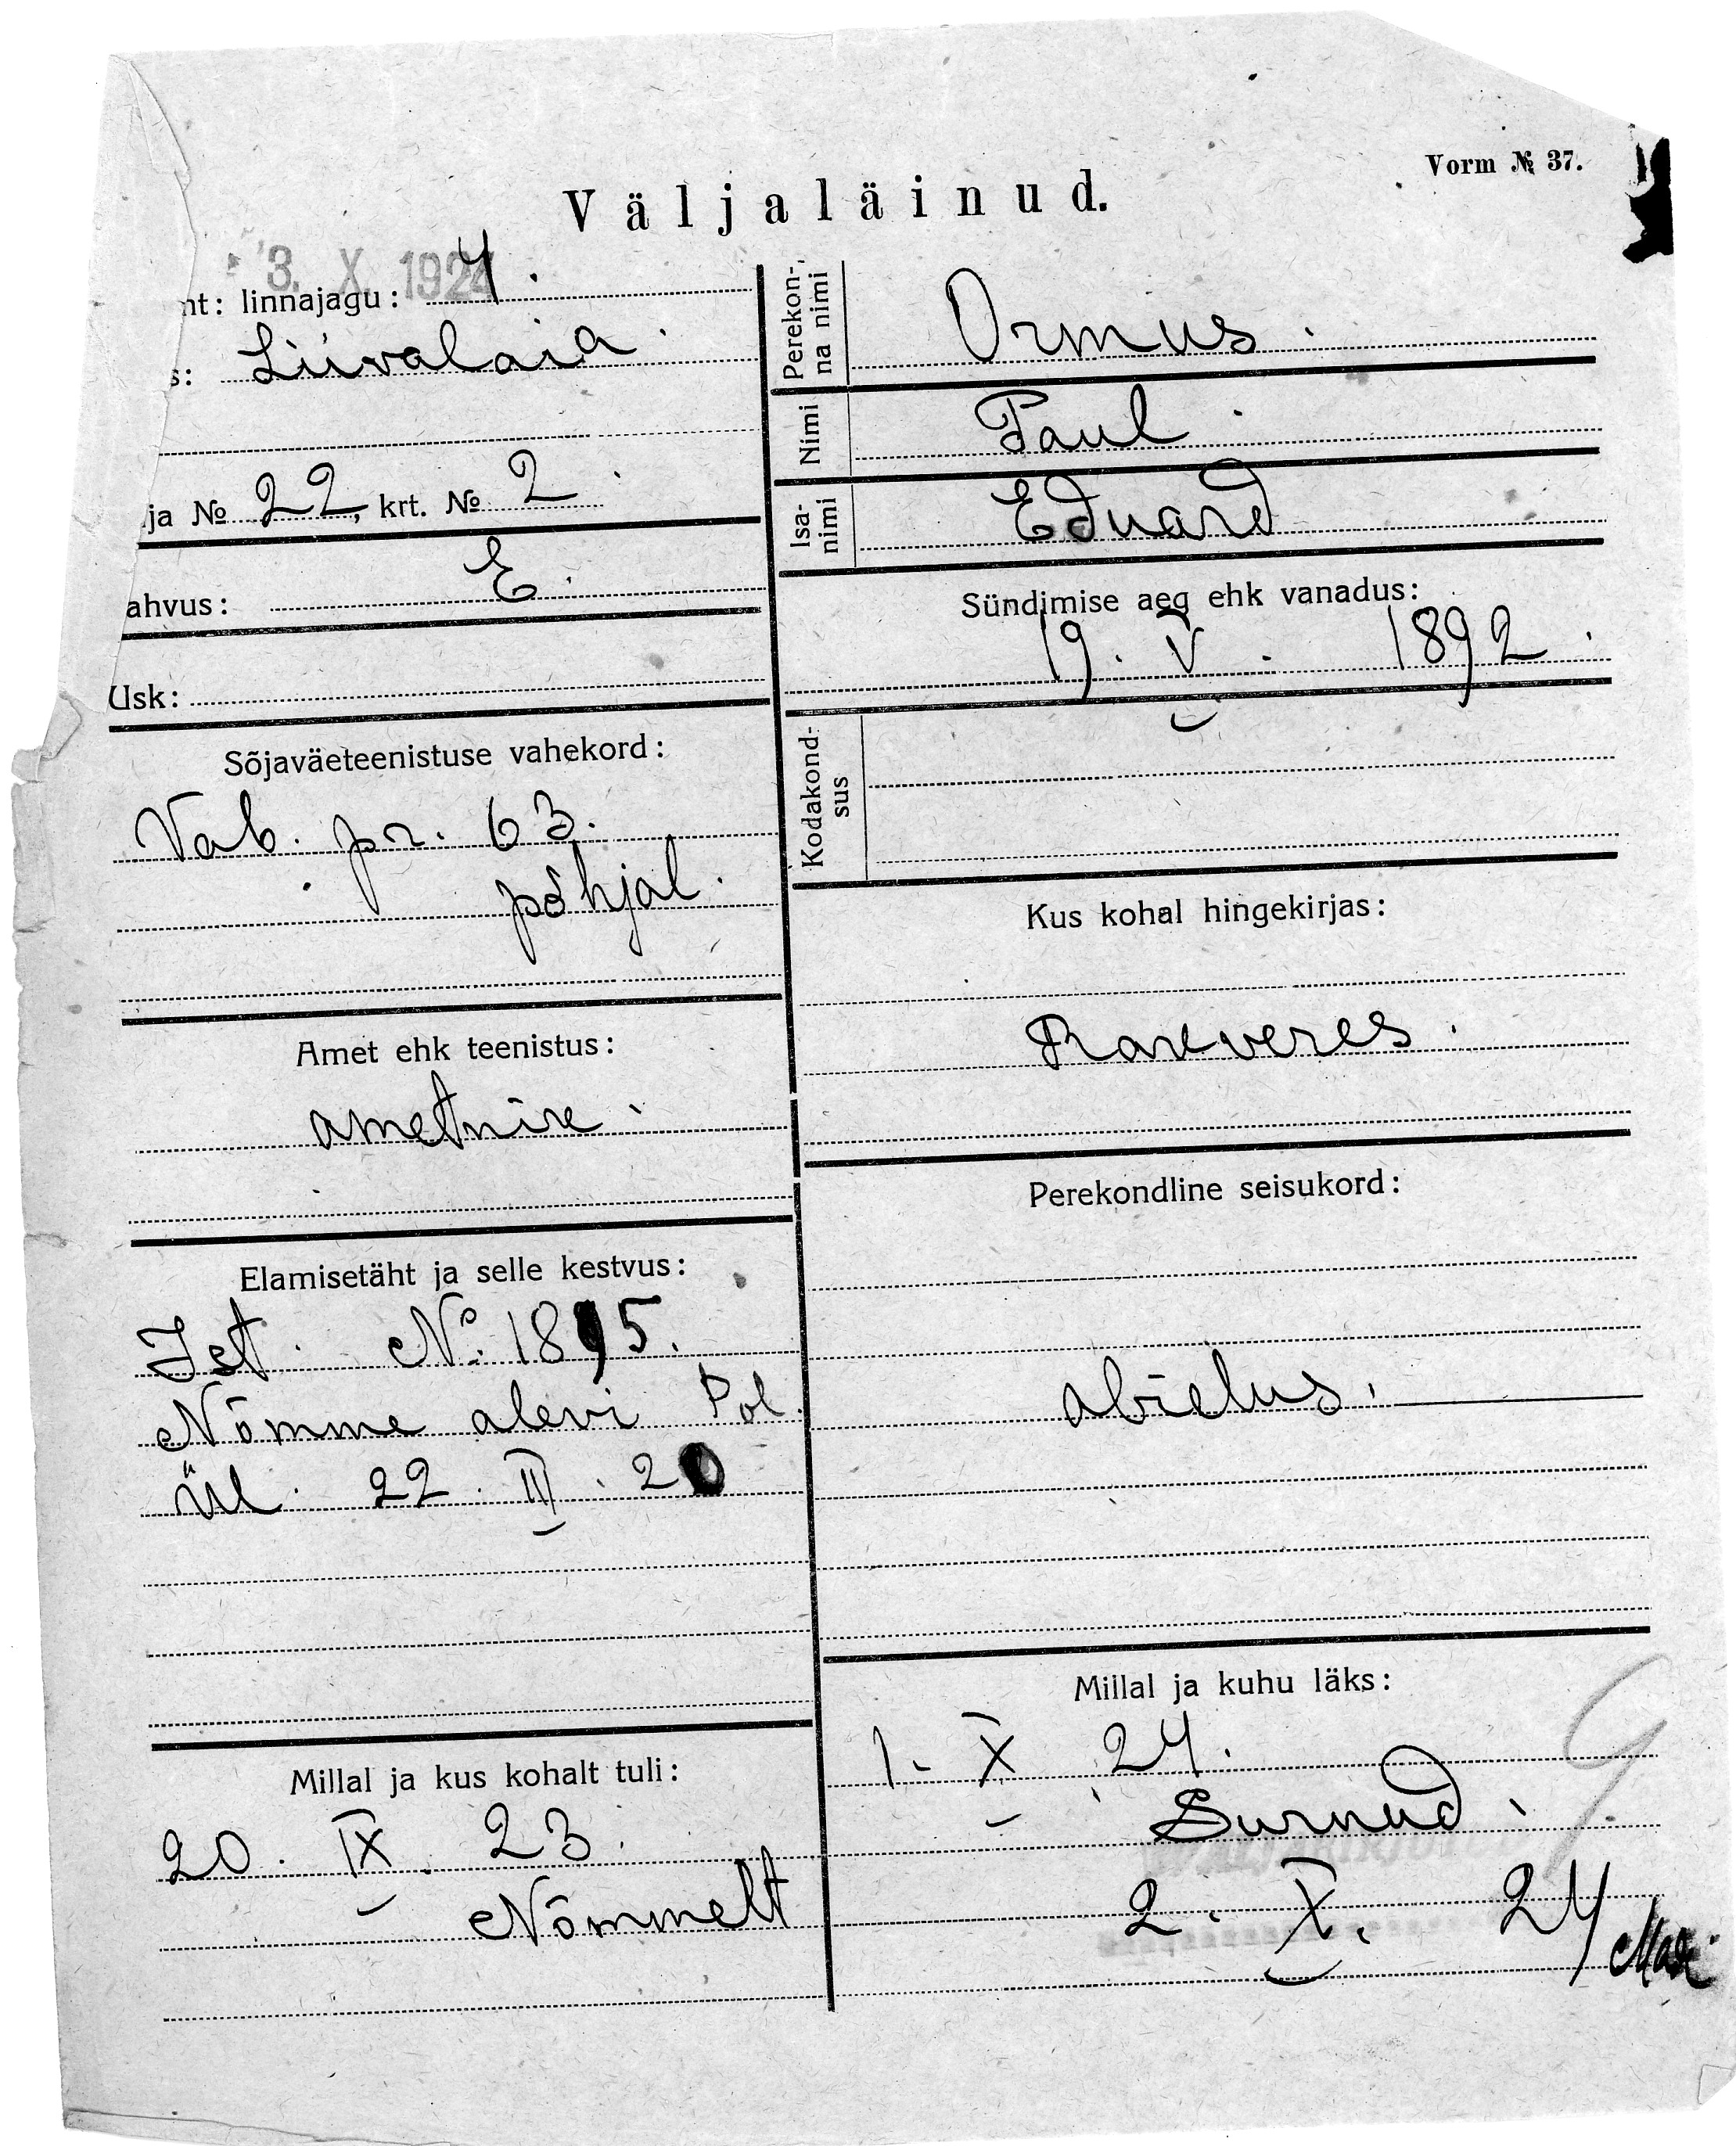 Vorm № 37.
Väljaläinud.
3. X. 1924
nt: linnajagu: 4.
s: Liivalaia.
ja № 22, krt. № 2.
ahvus: E.
Usk:
Sõjaväeteenistuse vahekord:
Vab. pr. 63.
põhjal.
Amet ehk teenistus:
ametnik.
Elamisetäht ja selle kestvus:
Ist. №. 1895.
Nõmme alevi Pol.
Ül. 22. III. 20
Millal ja kus kohalt tuli:
20. IX. 23.
Nõmmelt
Perekon-
na nimi
Ormus.
Nimi
Paul.
Isa-
nimi
Eduard
Sündimise aeg ehk vanadus:
19. V. 1892.
Kodakond-
sus
Kus kohal hingekirjas:
Rakveres.
Perekondline seisukord:
abielus.
Millal ja kuhu läks:
1. X 24.
Surnud.
2. X. 24